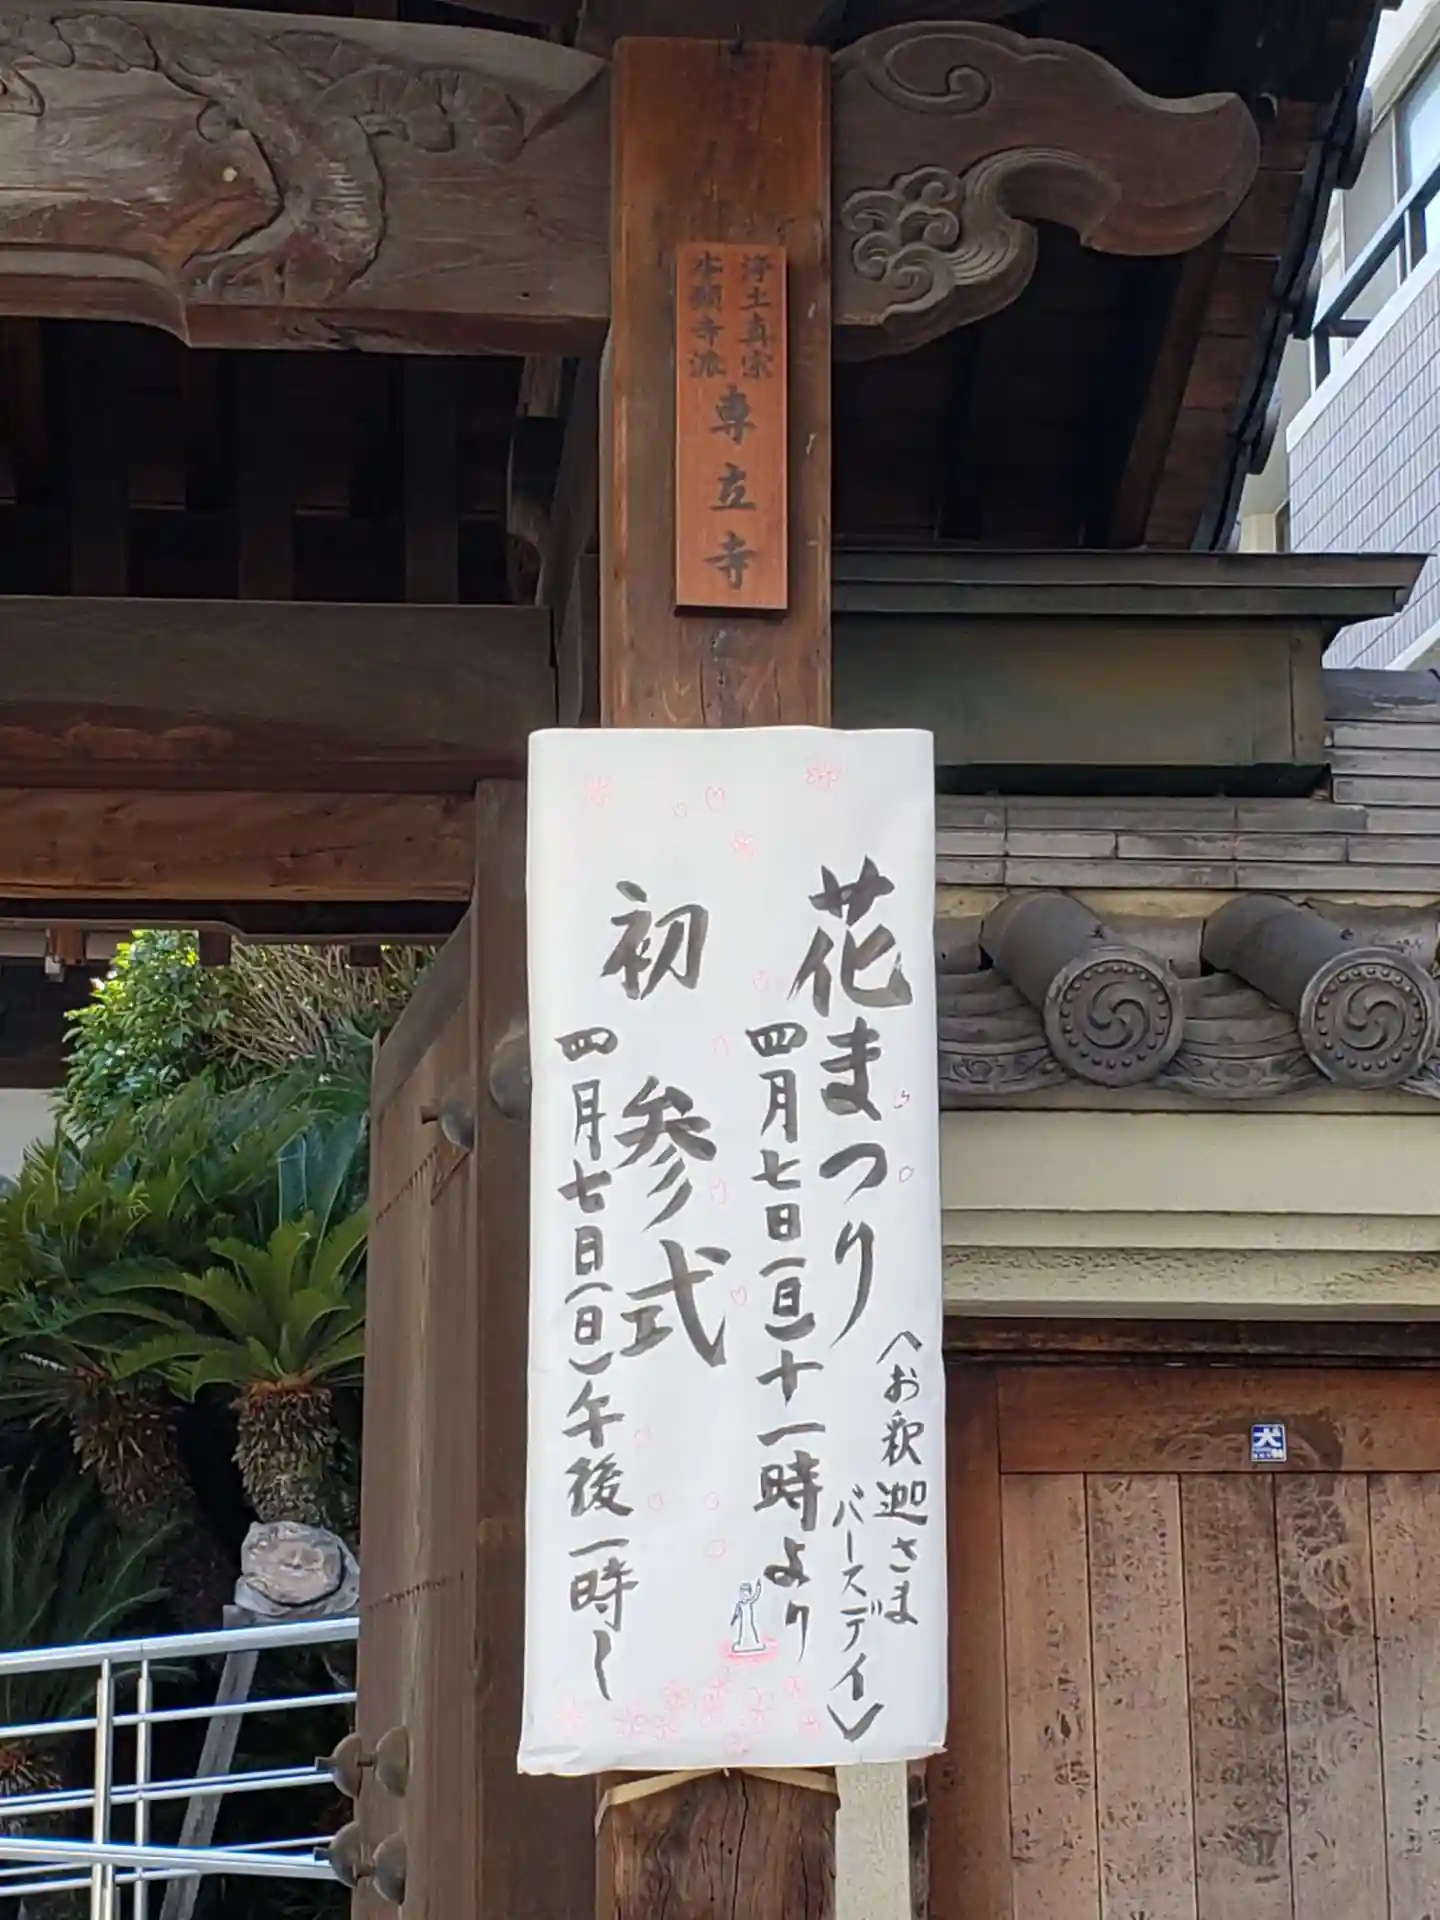 浄土真宗
本願寺派
専立寺
花まつり
（お釈迦さま
バースデイ）
四月七日（日）十一時より
初参式
四月七日（日）午後一時〜
犬